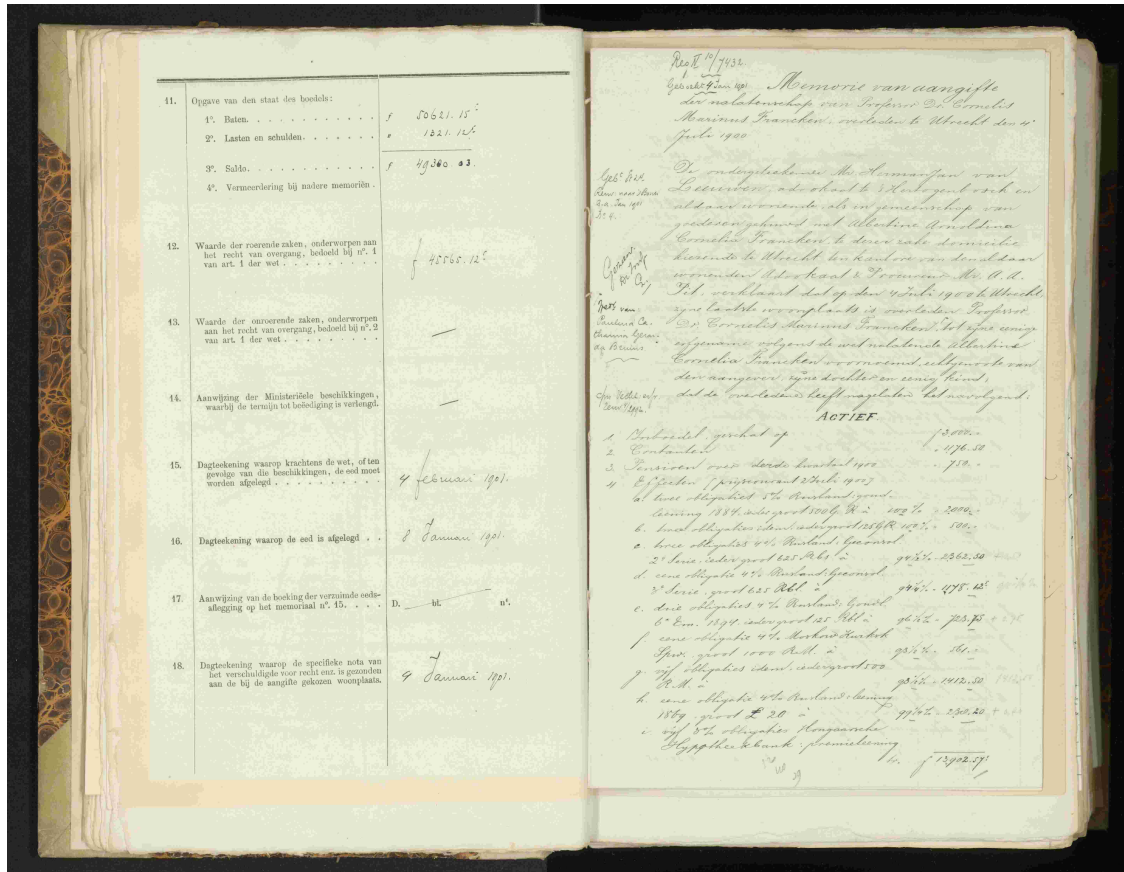 11. Opgave van den staat des boedels:
1°. Baten. f 50621.15⁵
2°. Lasten en schulden. „ 1321.12⁵
3°. Saldo. f 49300.03.
4°. Vermeerdering bij nadere memoriën.
12. Waarde der roerende zaken, onderworpen aan
het recht van overgang, bedoeld bij n°. 1
van art. 1 der wet f 45565.12⁵
13. Waarde der onroerende zaken, onderworpen
aan het recht van overgang, bedoeld bij n°. 2
van art. 1 der wet —
14. Aanwijzing der Ministeriëele beschikkingen,
waarbij de termijn tot beëediging is verlengd. —
15. Dagteekening waarop krachtens de wet, of ten
gevolge van die beschikkingen, de eed moet
worden afgelegd 4 februari 1901.
16. Dagteekening waarop de eed is afgelegd 8 Januari 1901.
17. Aanwijzing van de boeking der verzuimde eeds-
aflegging op het memoriaal n°. 15. D. bl. n°.
18. Dagteekening waarop de specifieke nota van
het verschuldigde voor recht enz. is gezonden
aan de bij de aangifte gekozen woonplaats. 9 Januari 1901.
Reg II 10/7432
Geboekt 4 Jan 1901
Memorie van aangifte
der nalatenschap van Professor Dr. Cornelis
Marinus Francken, overleden te Utrecht den 4
Juli 1900
De ondergeteekende Mr. Herman Jan van
Leeuwen, advokaat te 's Hertogenbosch en
aldaar wonende, als in gemeenschap van
goederen gehuwd met Albertine Arnoldina
Cornelia Francken, te dezer zake domicilie
kiezende te Utrecht ten kantore van den aldaar
wonenden Advokaat & Procureur Mr. A. A.
Pit, verklaart dat op den 4 Juli 1900 te Utrecht,
zijne laatste woonplaats is overleden Professor
Dr. Cornelis Marinus Francken, tot zijne eenige
erfgename volgens de wet nalatende Albertine
Cornelia Francken voornoemd, echtgenoote van
den aangever, zijne dochter en eenig kind;
dat de overledene heeft nagelaten het navolgend:
wedr van
Paulina Ca-
tharina Gerar-
da
ACTIEF.
1 Inboedel, geschat op f 3,000.-
2 Contanten „ 1176.50
3 Pensioen over derde kwartaal 1900 „ 750.-
4 Effecten (prijscourant 2 Juli 1900)
a. twee obligatiën 5% Rusland, goud
leening 1884, ieder groot 500 G. R. à 100% „ 2,000.-
b. twee obligatiën idem, ieder groot 125 GR 100% „ 500.-
c. twee obligatiën 4% Rusland, Geconsol.
2e Serie, ieder groot 625 Rbl. à 94½% „ 2362.50
d. eene obligatie 4% Rusland, Geconsol.
groot 625 Rbl. à 94¼% „ 1178.12⁵
e. drie obligatiën 4% Rusland, Goudl.
6e Em. 1894, ieder groot 125 Rbl à 96½% „ 723.75
f. eene obligatie 4% Moskou Kursk
Spw. groot 1000 R.M. à 93½% „ 561.-
g. vijf obligatiën idem, ieder groot 500
R.M. à 93½% „ 1412.50
h. eene obligatie 4% Rusland leening
1869, groot £ 20 à „ 238.20
i. vijf obligatiën Hongaarsche
Hypotheekbank, premieleening
f 13,902.57⁵